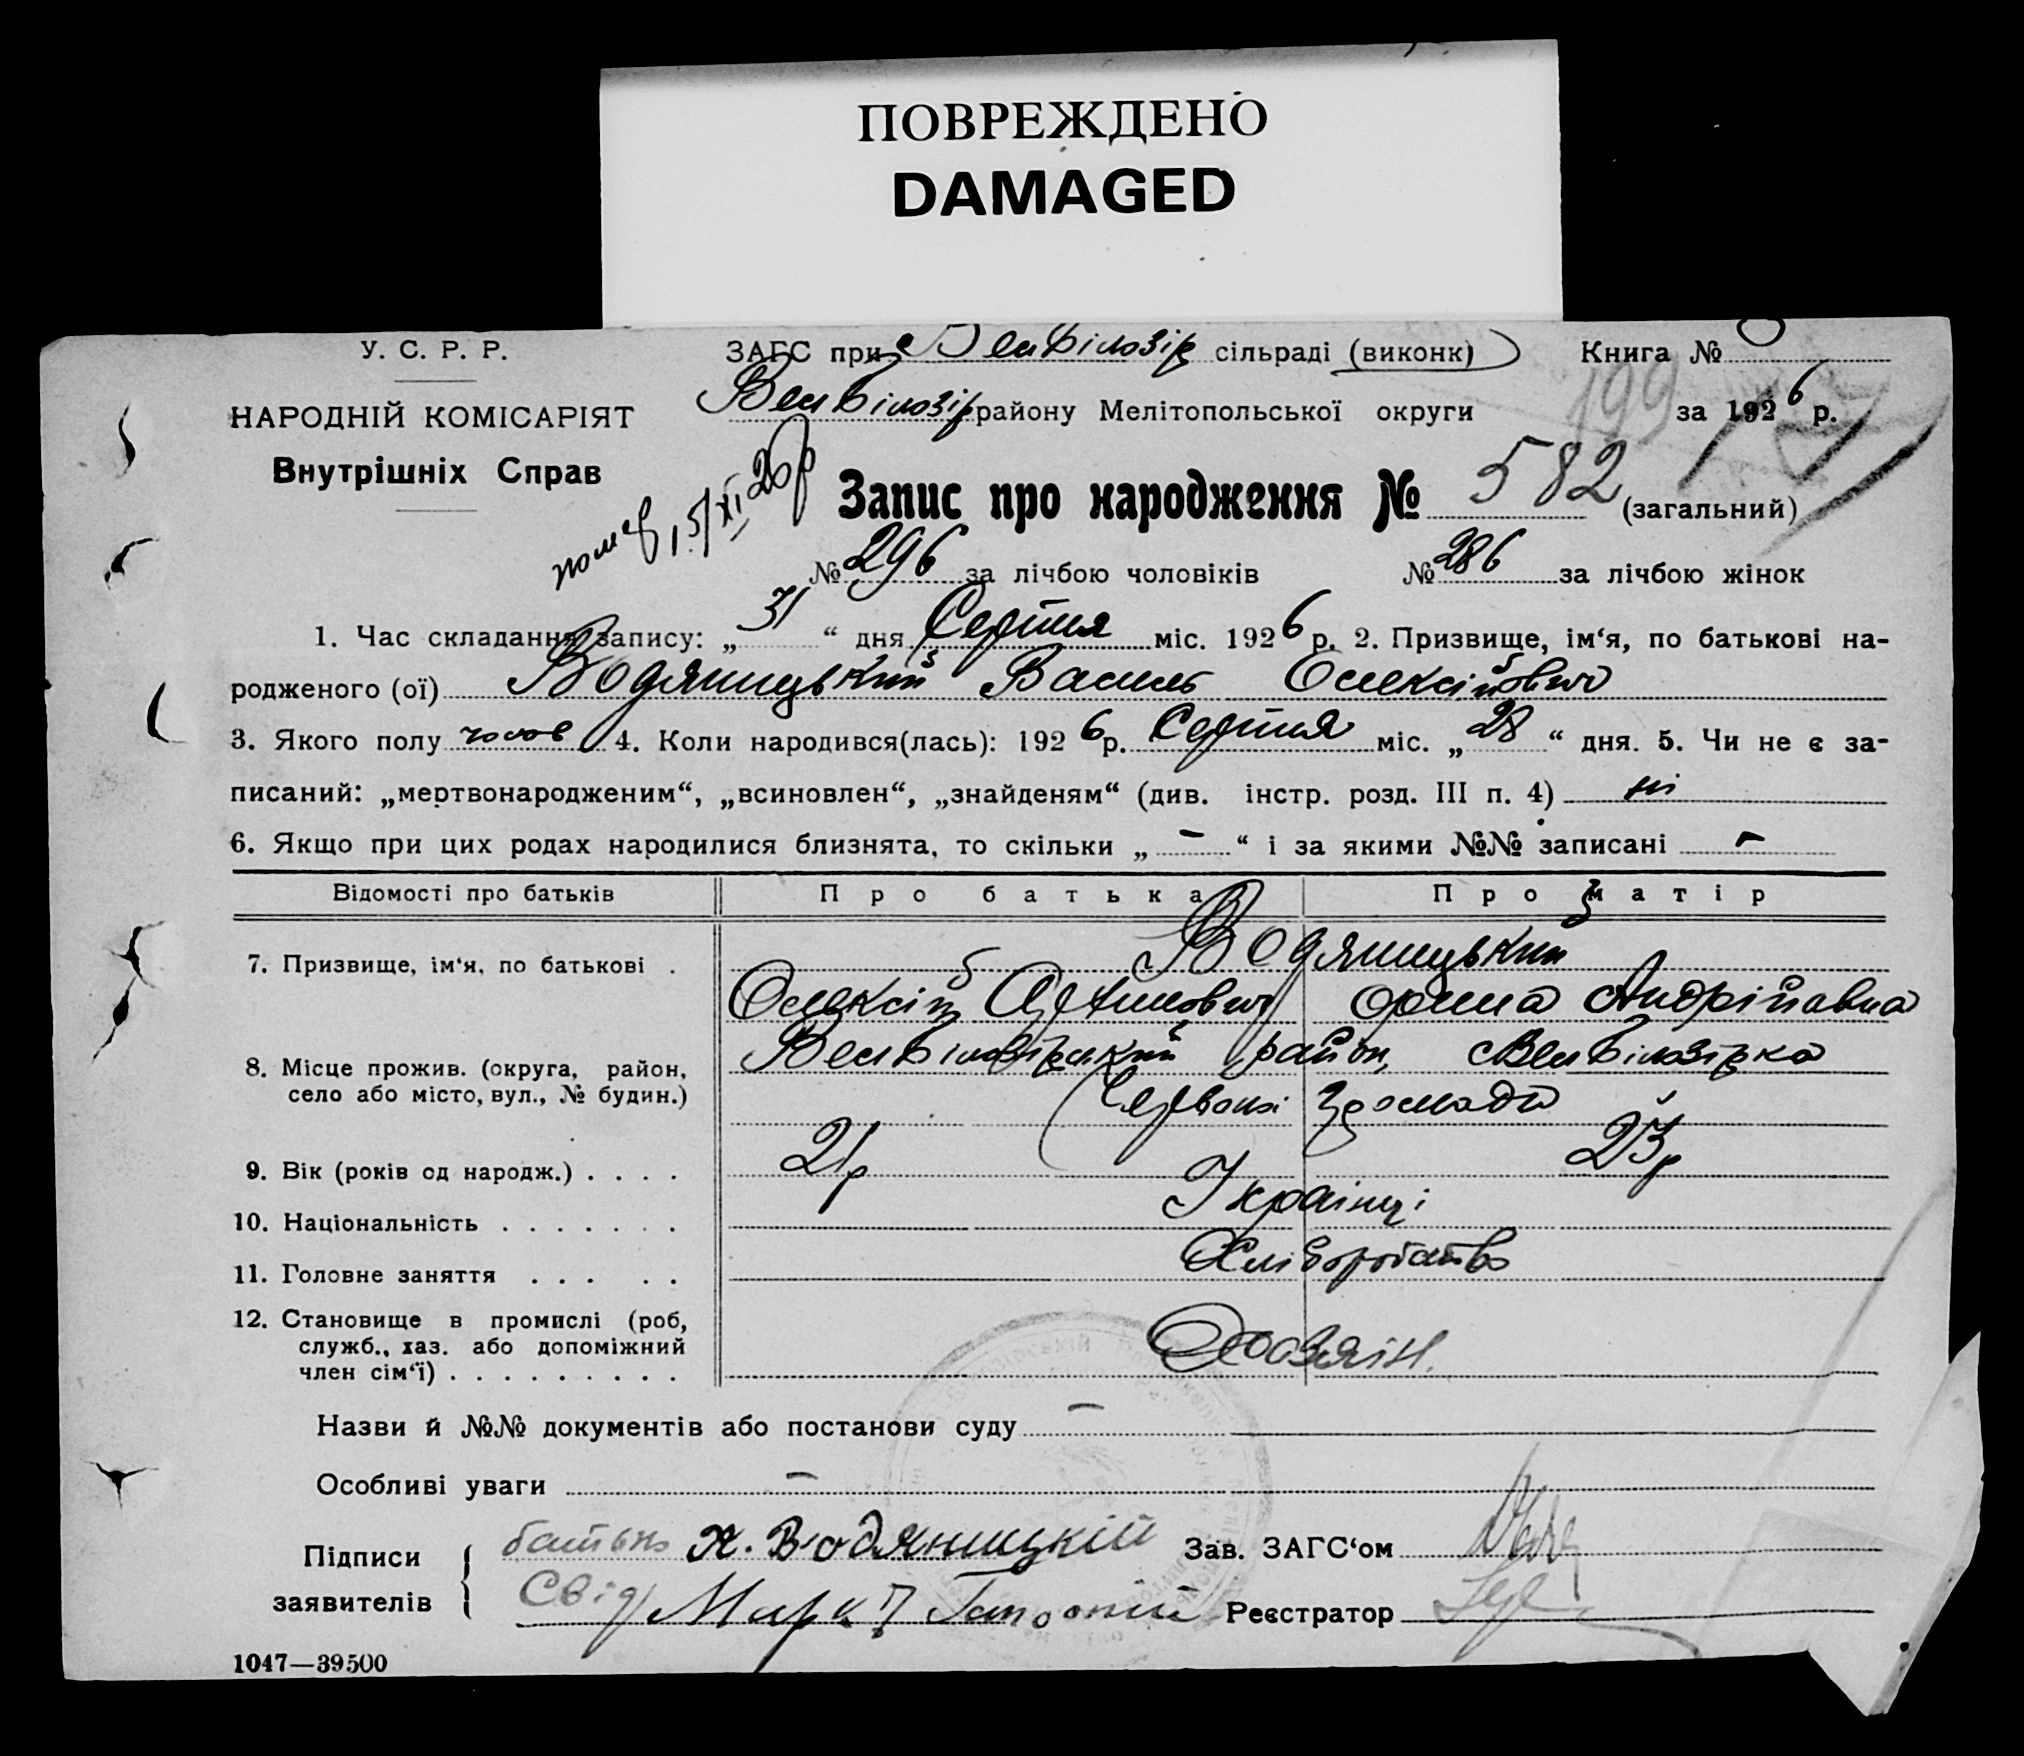 ПОВРЕЖДЕНО
DAMAGED
У. С. Р. Р.
ЗАГС при ВелБілозір сільраді (виконк)
Книга №
НАРОДНІЙ КОМІСАРІЯТ
ВелБілозір району Мелітопольської округи
199
за 1926 р.
Внутрішніх Справ
помер 15/XI 26р
Запис про народження № 582 (загальний)
№ 296 за лічбою чоловіків № 286 за лічбою жінок
1. Час складання запису: „31“ дня Серпня міс. 1926 р. 2. Призвище, ім‘я, по батькові на-
родженого (ої) Водяницький Василь Олексійович
3. Якого полу чолов 4. Коли народився(лась): 1926 р. Серпня міс. „28“ дня. 5. Чи не є за-
писаний: „мертвонародженим“, „всиновлен“, „знайденям“ (див. інстр. розд. III п. 4) ні
6. Якщо при цих родах народилися близнята, то скільки „ – “ і за якими №№ записані –
Відомості про батьків Про батька Про матір
7. Призвище, ім‘я, по батькові . Водяницький
Олексій Орина Андріївна
8. Місце прожив. (округа, район, ВелБілозірський район, ВелБілозірка
село або місто, вул., № будин.) Червоної громади
9. Вік (років од народж.) . . . . 21р 23р
10. Національність . . . . . . . Українці
11. Головне заняття . . . . . Хліборобство
12. Становище в промислі (роб,
служб., хаз. або допоміжний Хозяїн.
член сім‘ї) . . . . . . . . .
Назви й №№ документів або постанови суду –
Особливі уваги –
Підписи батько Х. Водяницкій Зав. ЗАГС‘ом
заявителів Свід Реєстратор
1047—39500